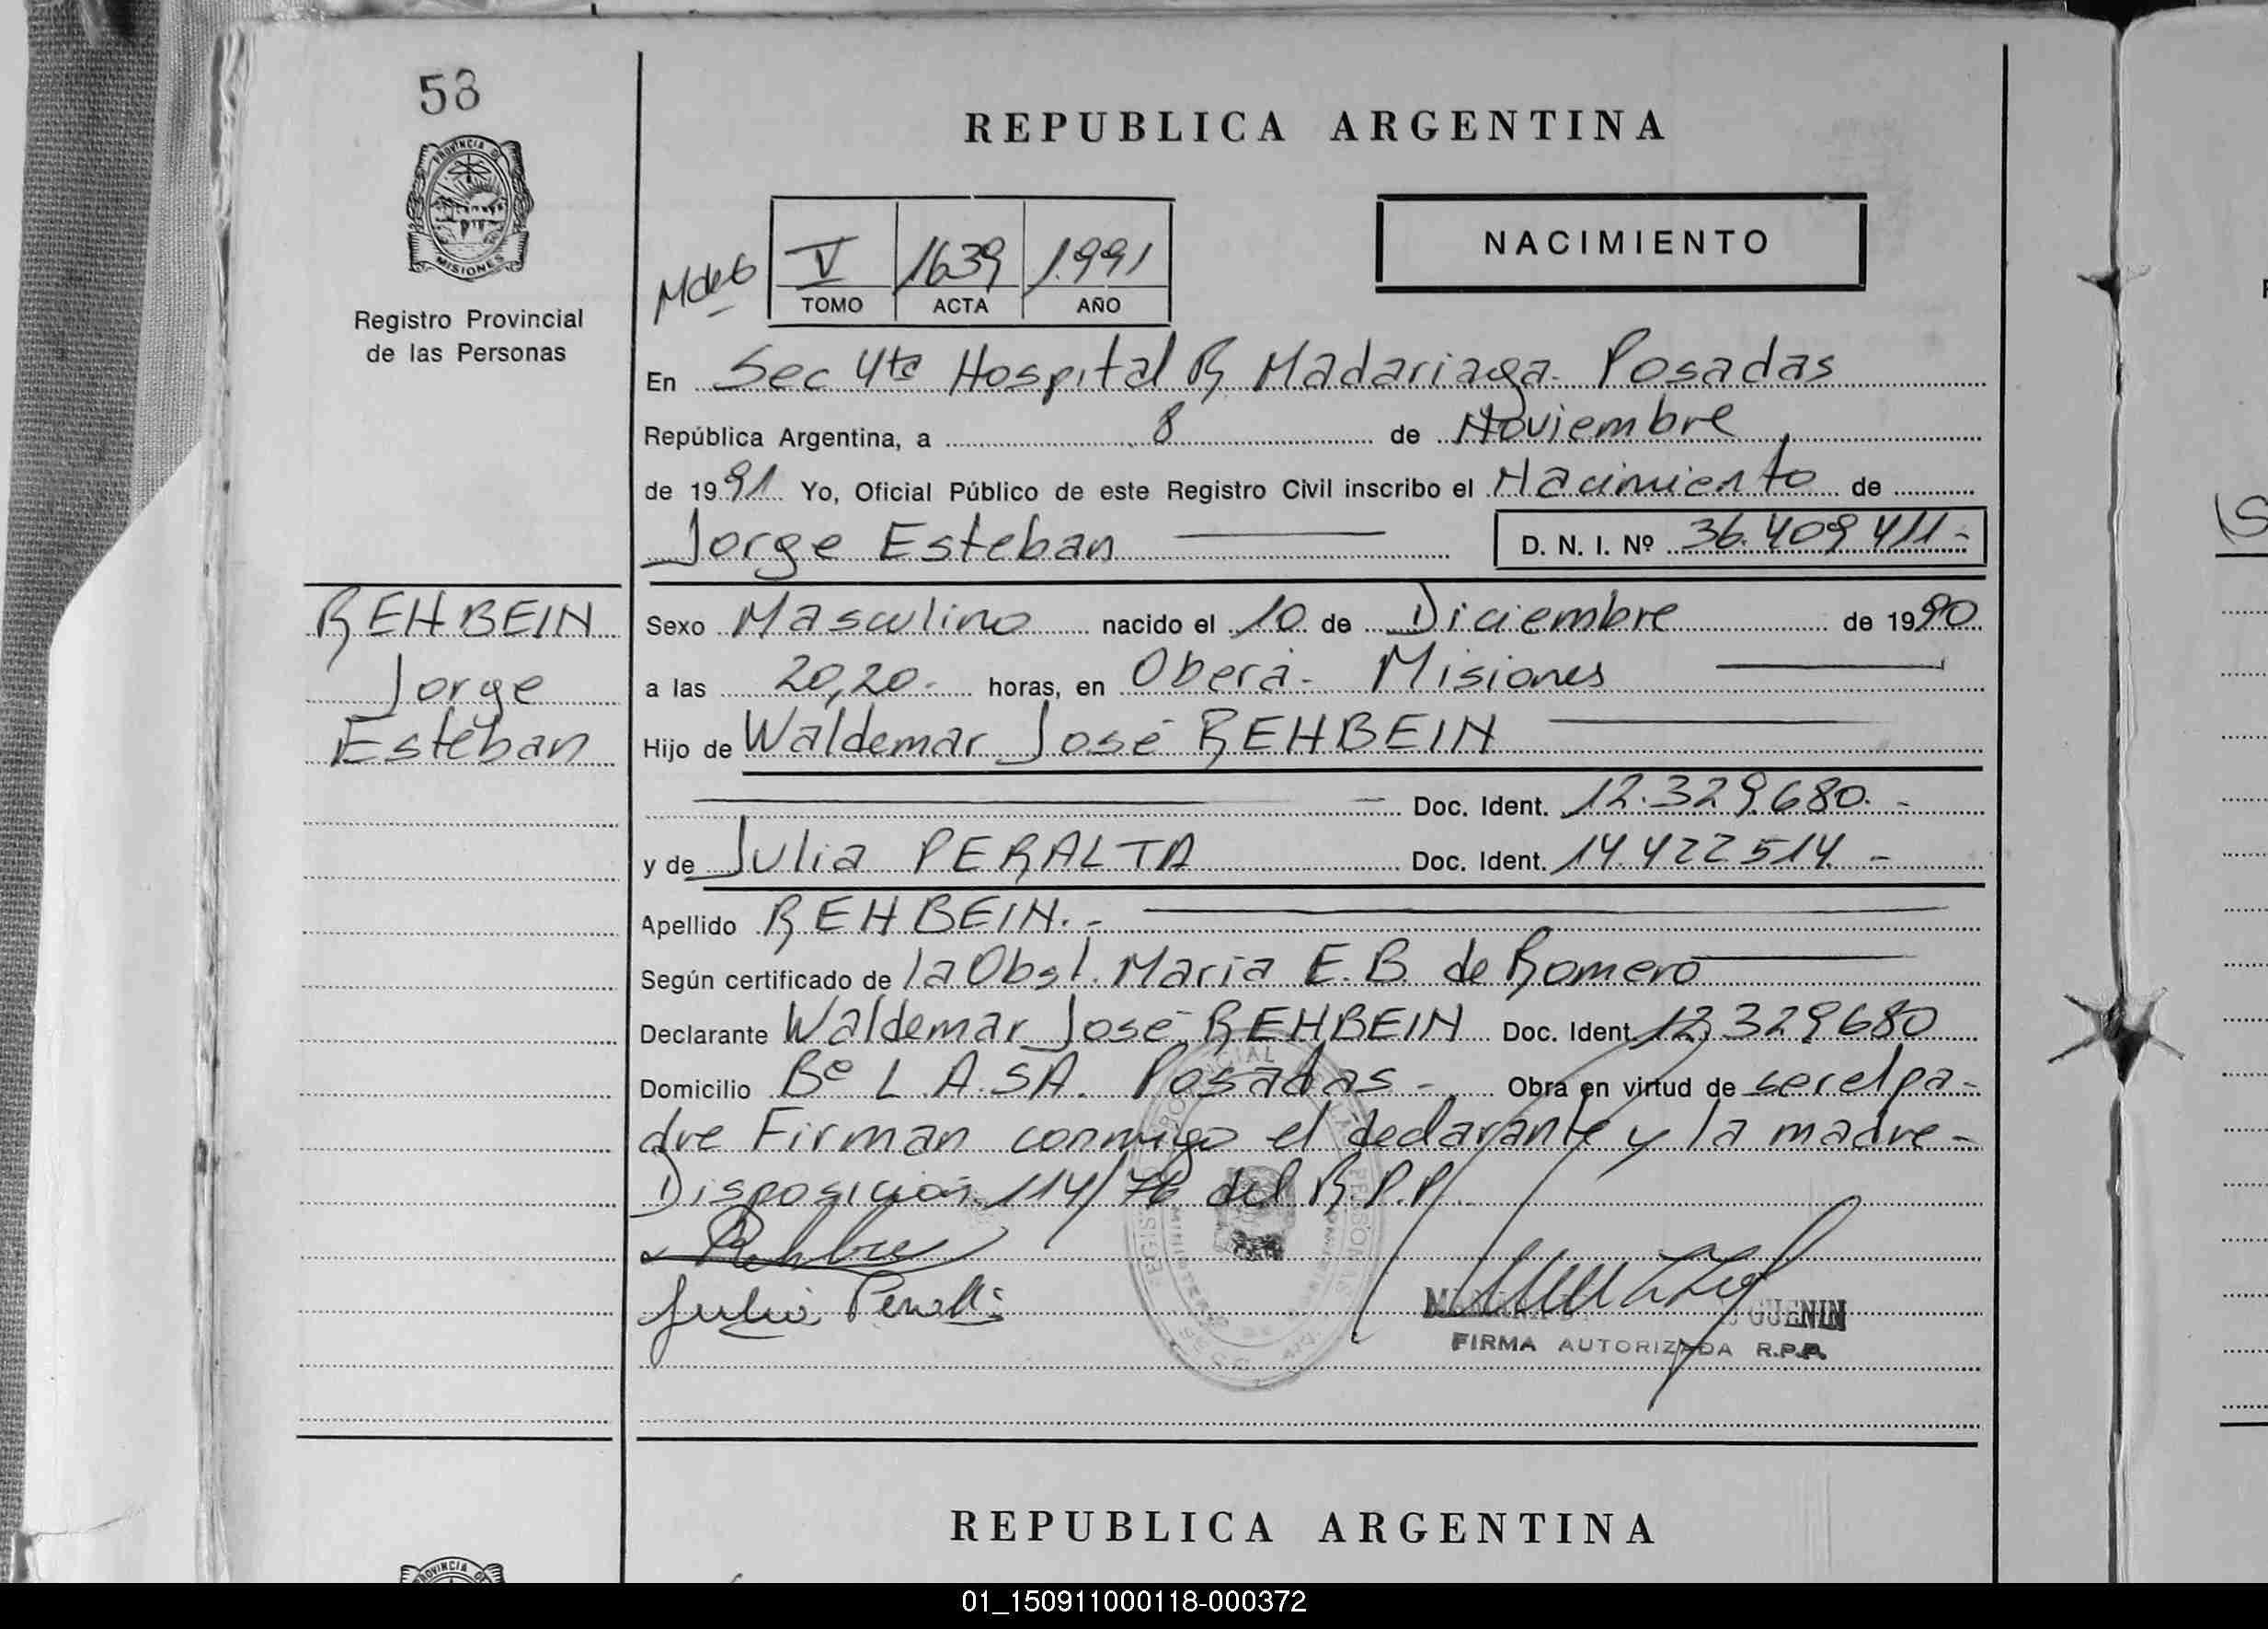 58
PROVINCIA DE
MISIONES
Registro Provincial
de las Personas
REHBEIN
Jorge
Esteban
REPUBLICA ARGENTINA
V 1639 1.991
TOMO ACTA AÑO
NACIMIENTO
En Sec 4ta Hospital R Madariaga. Posadas
República Argentina, a 8 de Noviembre
de 1991 Yo, Oficial Público de este Registro Civil inscribo el Nacimiento de
Jorge Esteban D. N. I. Nº 36.409 411-
Sexo Masculino nacido el 10 de Diciembre de 1990
a las 20,20. horas, en Oberá. Misiones
Hijo de Waldemar José REHBEIN
Doc. Ident. 12.329.680.-
y de Julia PERALTA Doc. Ident. 14.422514.-
Apellido REHBEIN.-
Según certificado de la Obst. María E.B. de Romero
Declarante Waldemar José REHBEIN Doc. Ident. 12.329680
Domicilio Bº L.A.SA. Posadas- Obra en virtud de ser el pa-
dre Firman conmigo el declarante y la madre-
Disposición 114/76 del R.P.P.
Julia Peralta
GUENIN
FIRMA AUTORIZADA R.P.P.
REPUBLICA ARGENTINA
PROVINCIA DE
01_150911000118-000372